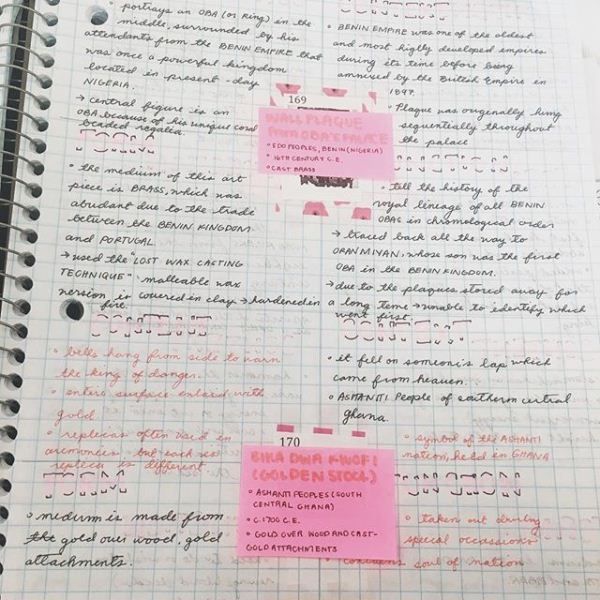 • portrays an OBA (or king) in the
middle, surrounded by his
attendants from the BENIN EMPIRE that
was once a powerful kingdom
located in present-day
NIGERIA.
→ central figure is an
OBA because of his unique coral
beaded regalia.
• the medium of this art
piece is BRASS, which was
abudant due to the trade
between the BENIN KINGDOM
and PORTUGAL
→ used the "LOST WAX CASTING
TECHNIQUE" malleable wax
version is covered in clay → hardened in
fire.
• bells hang from side to warn
the king of danger.
• entire surface enlaid with
gold.
• replicas often used in
ceremonies but each
replica is different.
• medium is made from
the gold over wood, gold
attachments.
169
WALL PLAQUE
FROM OBA'S PALACE
• EDO PEOPLES, BENIN (NIGERIA)
• 16TH CENTURY C.E.
• CAST BRASS
170
BIKA DWA KWOFI
(GOLDEN STOOL)
• ASHANTI PEOPLES (SOUTH
CENTRAL GHANA)
• C. 1700 C.E.
• GOLD OVER WOOD AND CAST-
GOLD ATTACHMENTS
• BENIN EMPIRE was one of the oldest
and most highly developed empires
during its time before being
annexed by the British Empire in
1897.
• Plaque was origenally hung
sequentially throughout
the palace
• tell the history of the
royal lineage of all BENIN
OBAS in chronological order
→ traced back all the way to
ORANMIYAN, whose son was the first
OBA in the BENIN KINGDOM.
→ due to the plaques stored away for
a long time → unable to identify which
went first.
• it fell on someone's lap which
came from heaven.
• ASHANTI People of southern central
Ghana.
• symbol of the ASHANTI
nation, held in GHANA
• taken out during
special occassions
• contains soul of nation